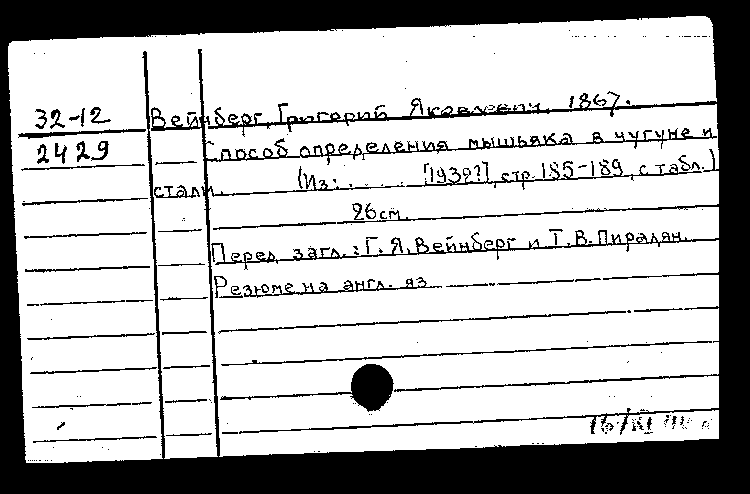 32-12 Вейнберг, Григорий Яковлевич, 1867.
2429 Способ определения мышьяка в чугуне и
стали. (Из: . . . . . [1932?], стр. 185-189, с табл.)
26 см.
Перед загл.: Г. Я. Вейнберг и Т. В. Пирадян.
Резюме на англ. яз
16/XI